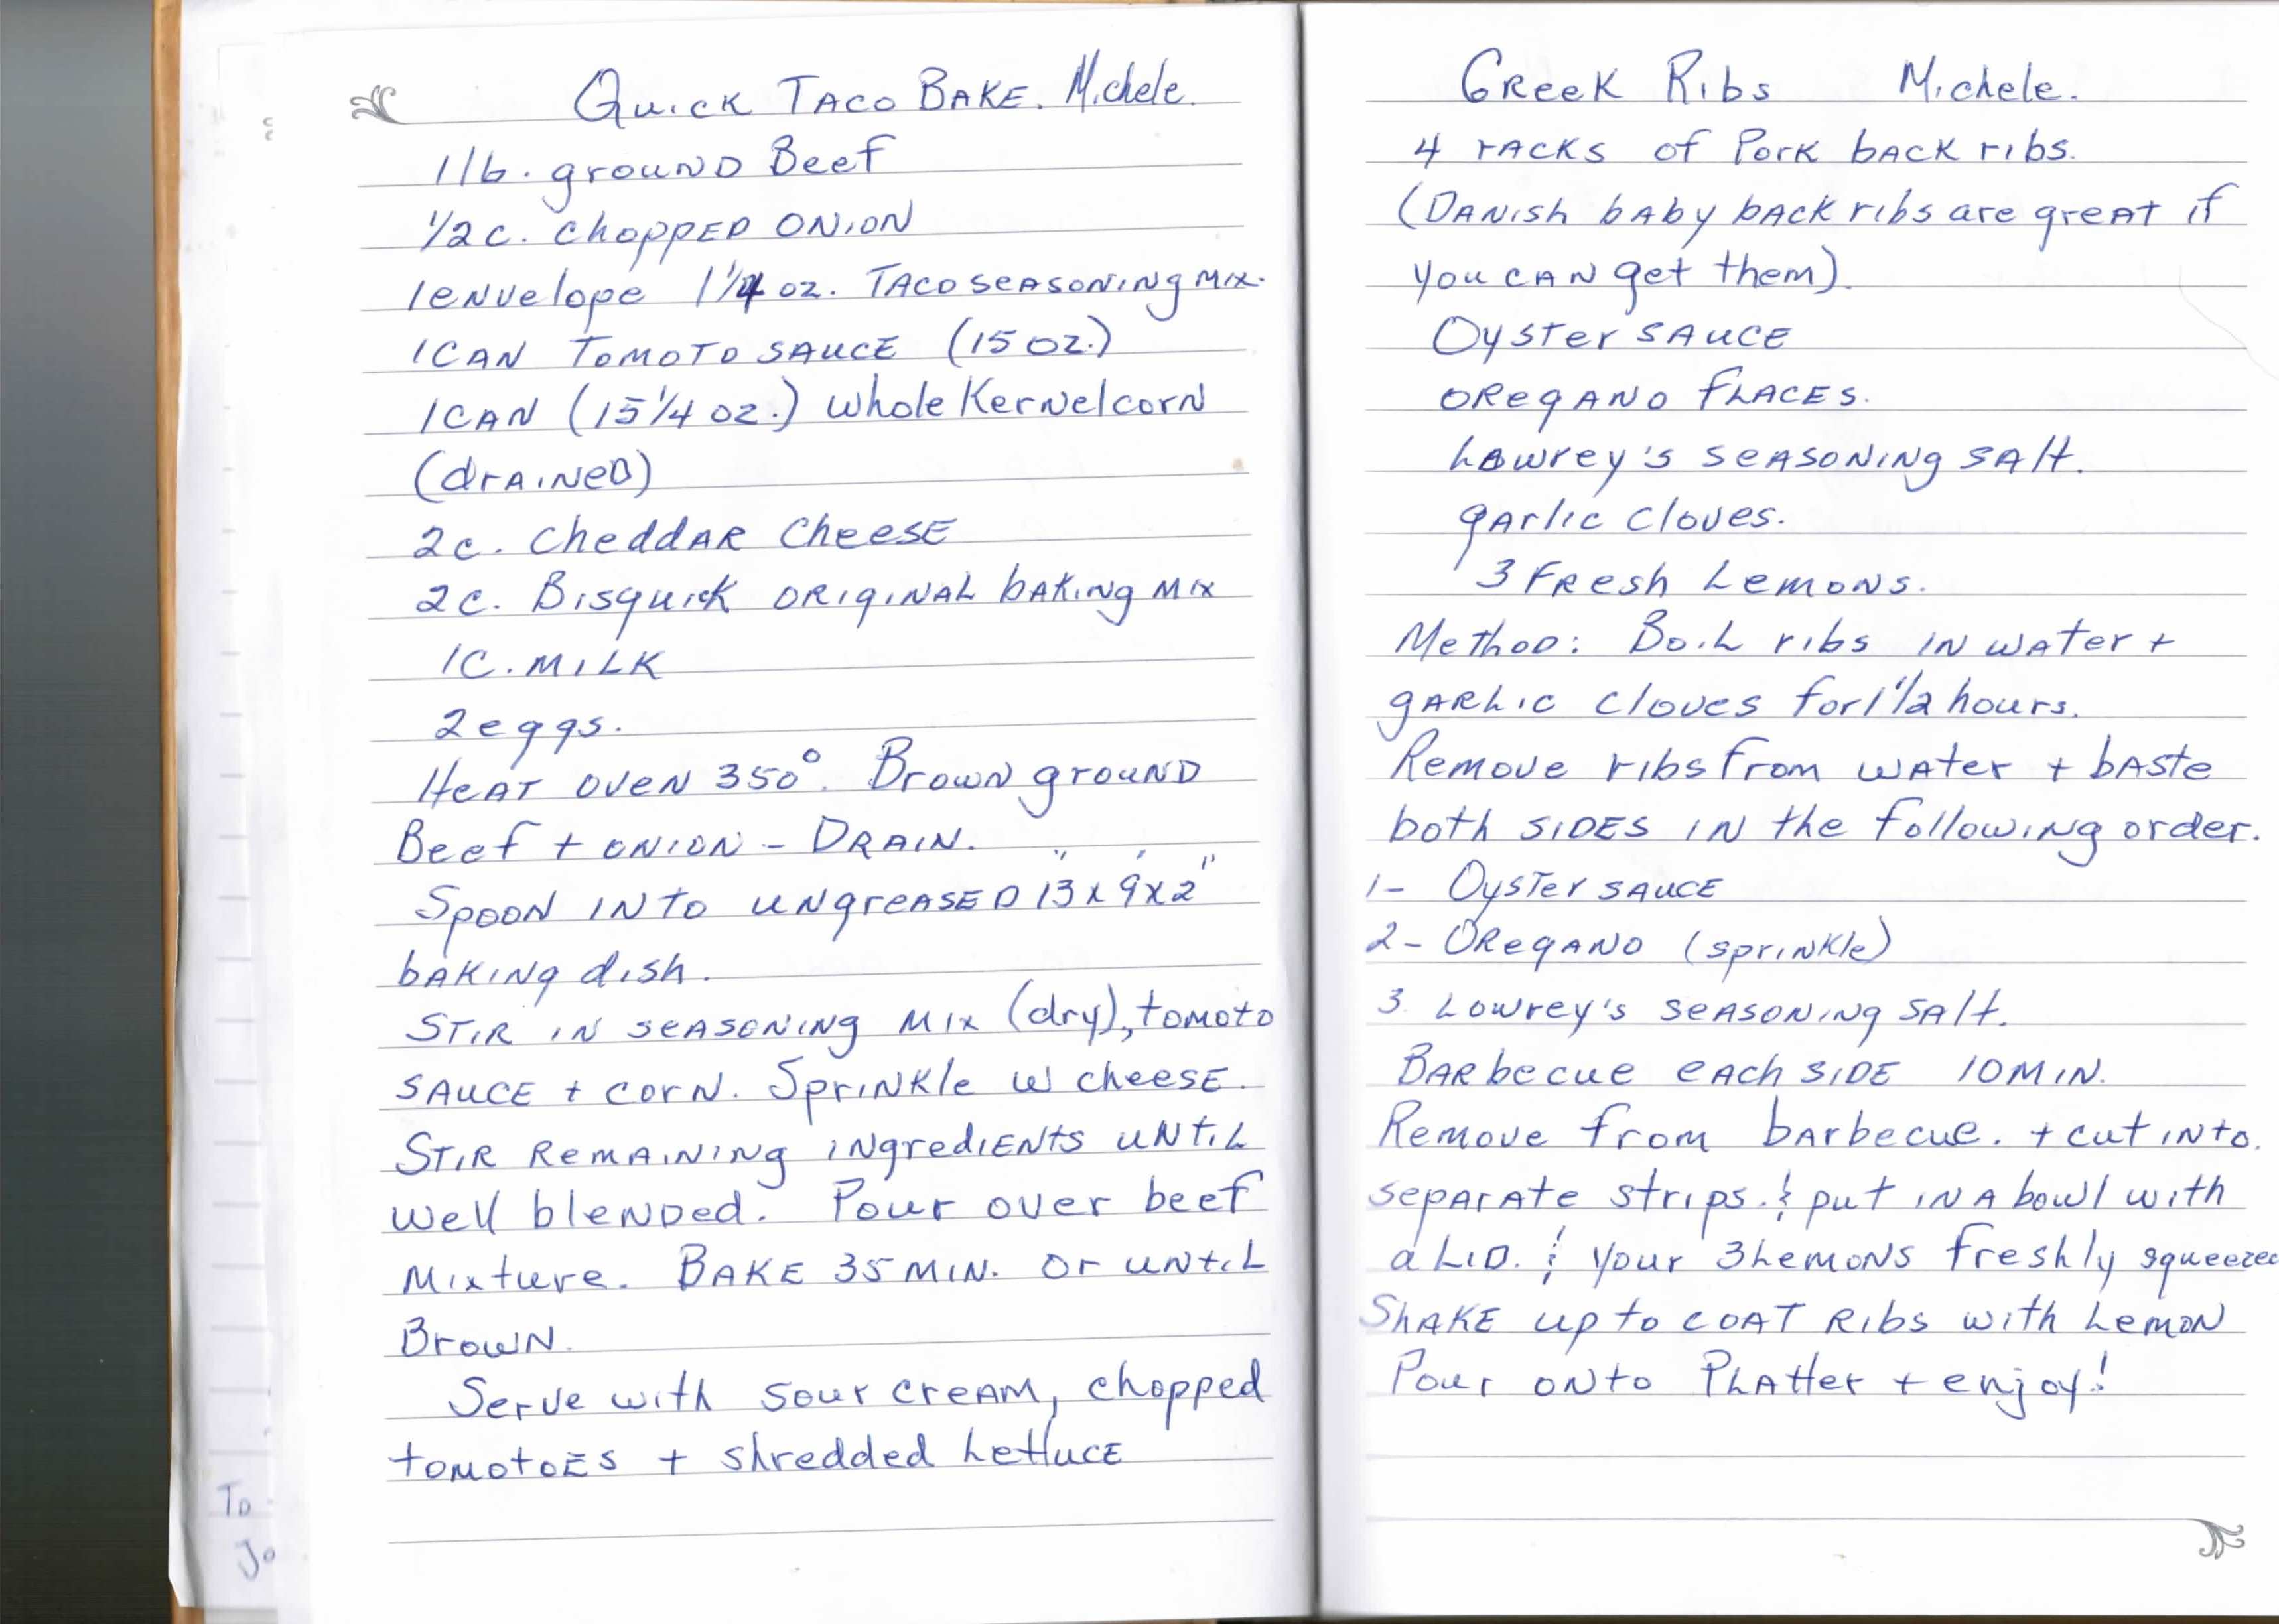 Quick Taco Bake. Michele.
1 lb. ground Beef
1/2 c. chopped onion
1 envelope 1 1/4 oz. Taco seasoning mix.
1 can Tomoto sauce (15 oz.)
1 can (15 1/4 oz.) whole Kernel corn
(drained)
2c. Cheddar Cheese
2c. Bisquick original baking mix
1c. milk
2 eggs.
Heat oven 350°. Brown ground
Beef + onion - Drain.
Spoon into ungreased 13" x 9" x 2"
baking dish.
Stir in seasoning mix (dry), tomoto
sauce + corn. Sprinkle w cheese.
Stir remaining ingredients until
well blended. Pour over beef
mixture. Bake 35 min. or until
Brown.
Serve with sour cream, chopped
tomotoes + shredded Lettuce
To
Jo
Greek Ribs Michele.
4 racks of Pork back ribs.
(Danish baby back ribs are great if
you can get them).
Oyster sauce
Oregano flaces.
Lawrey's seasoning salt.
garlic cloves.
3 Fresh Lemons.
Method: Boil ribs in water +
garlic cloves for 1 1/2 hours.
Remove ribs from water + baste
both sides in the following order.
1- Oyster sauce
2- Oregano (sprinkle)
3. Lowrey's seasoning salt.
Barbecue each side 10 min.
Remove from barbecue. + cut into.
separate strips. & put in a bowl with
a Lid. & your 3 Lemons freshly squeezed
Shake up to coat Ribs with Lemon
Pour onto Platter + enjoy!